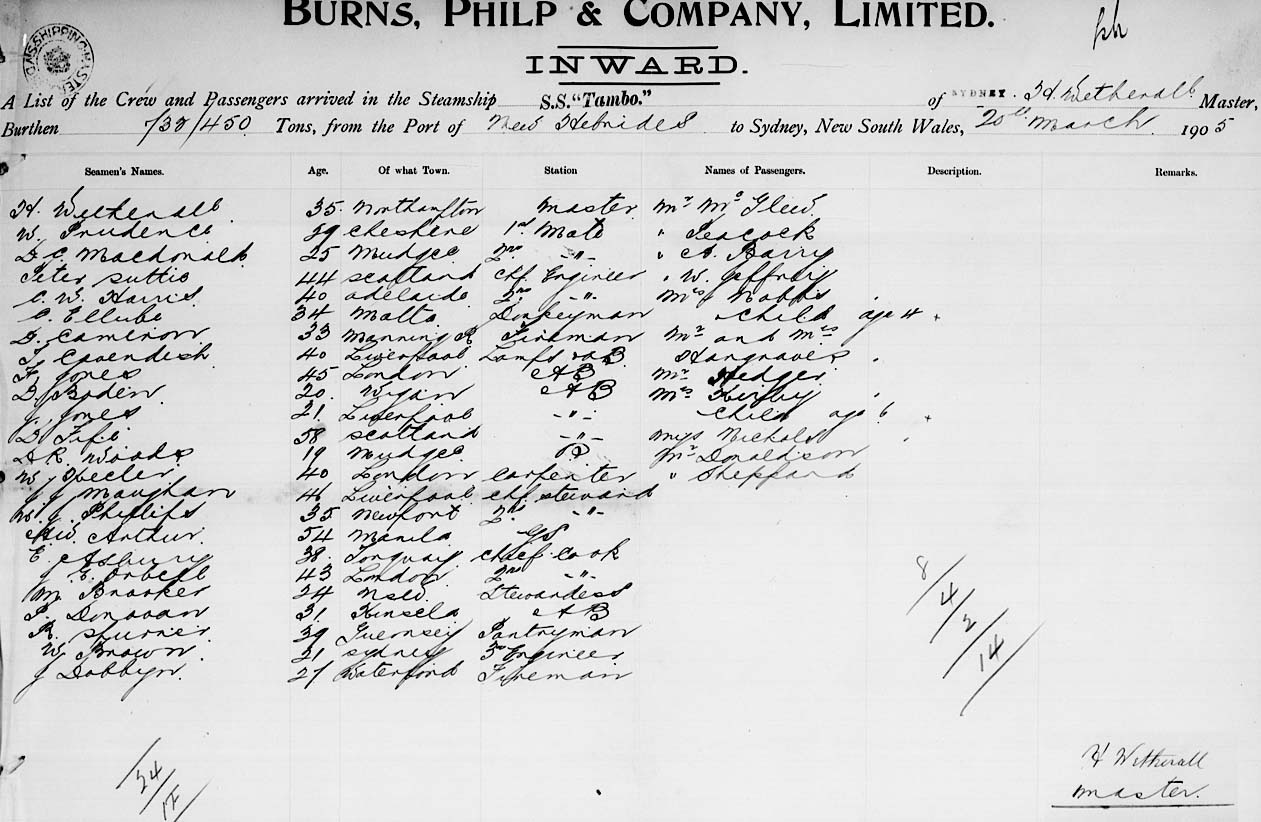 BURNS, PHILP & COMPANY, LIMITED.
INWARD.
A List of the Crew and Passengers arrived in the Steamship S.S. "Tambo." of SYDNEY. H. Wetherall Master,
Burthen /450 Tons, from the Port of New Hebrides to Sydney, New South Wales, 20th March 1905
Seamen's Names. Age. Of what Town. Station Names of Passengers. Description. Remarks.
H. Wetherall 35 Northampton Master Mr McGlew
W. Prudence 29 Cheshire 1st Mate " Peacock
D. C. Macdonald 25 Mudgee 2nd -"- " A. Barry
Peter Suttie 44 Scotland Chf. Engineer " W. Jeffrey
C. W. Harris 40 Adelaide 2nd -"- Mrs Nobbs
C. Ellube 34 Malta Donkeyman " Child age 4
D. Cameron 33 Manning R Fireman Mr and Mrs
T. Cavendish 40 Liverpool Lamps AB Hargraves
F. Jones 45 London AB Mr Hedger
D. Boden 20 Wigan AB Mrs Kirby
J. Jones 21 Liverpool -"- Child age 6
D. Fife 58 Scotland -"- Miss Nichols
A R. Woods 19 Mudgee Mr Donaldson
W. 40 London Carpenter " Sheppard
J J Maughan 46 Liverpool Chf. Steward
W. J. Phillips 35 Newport 2nd -"-
Arthur 54 Manila GS
E. Asbury 38 Torquay Chief Cook
J. E. Orbell 43 London 2nd -"-
M. Brooker 24 NSW. Stewardess
P. Donovan 31 Kinsela AB
R. Spurrier 39 Guernsey Pantryman
W. Brown 21 Sydney 3rd Engineer
J Dobbyn 27 Waterford Fireman
8/4/2/14
24/
H Wetherall
Master.